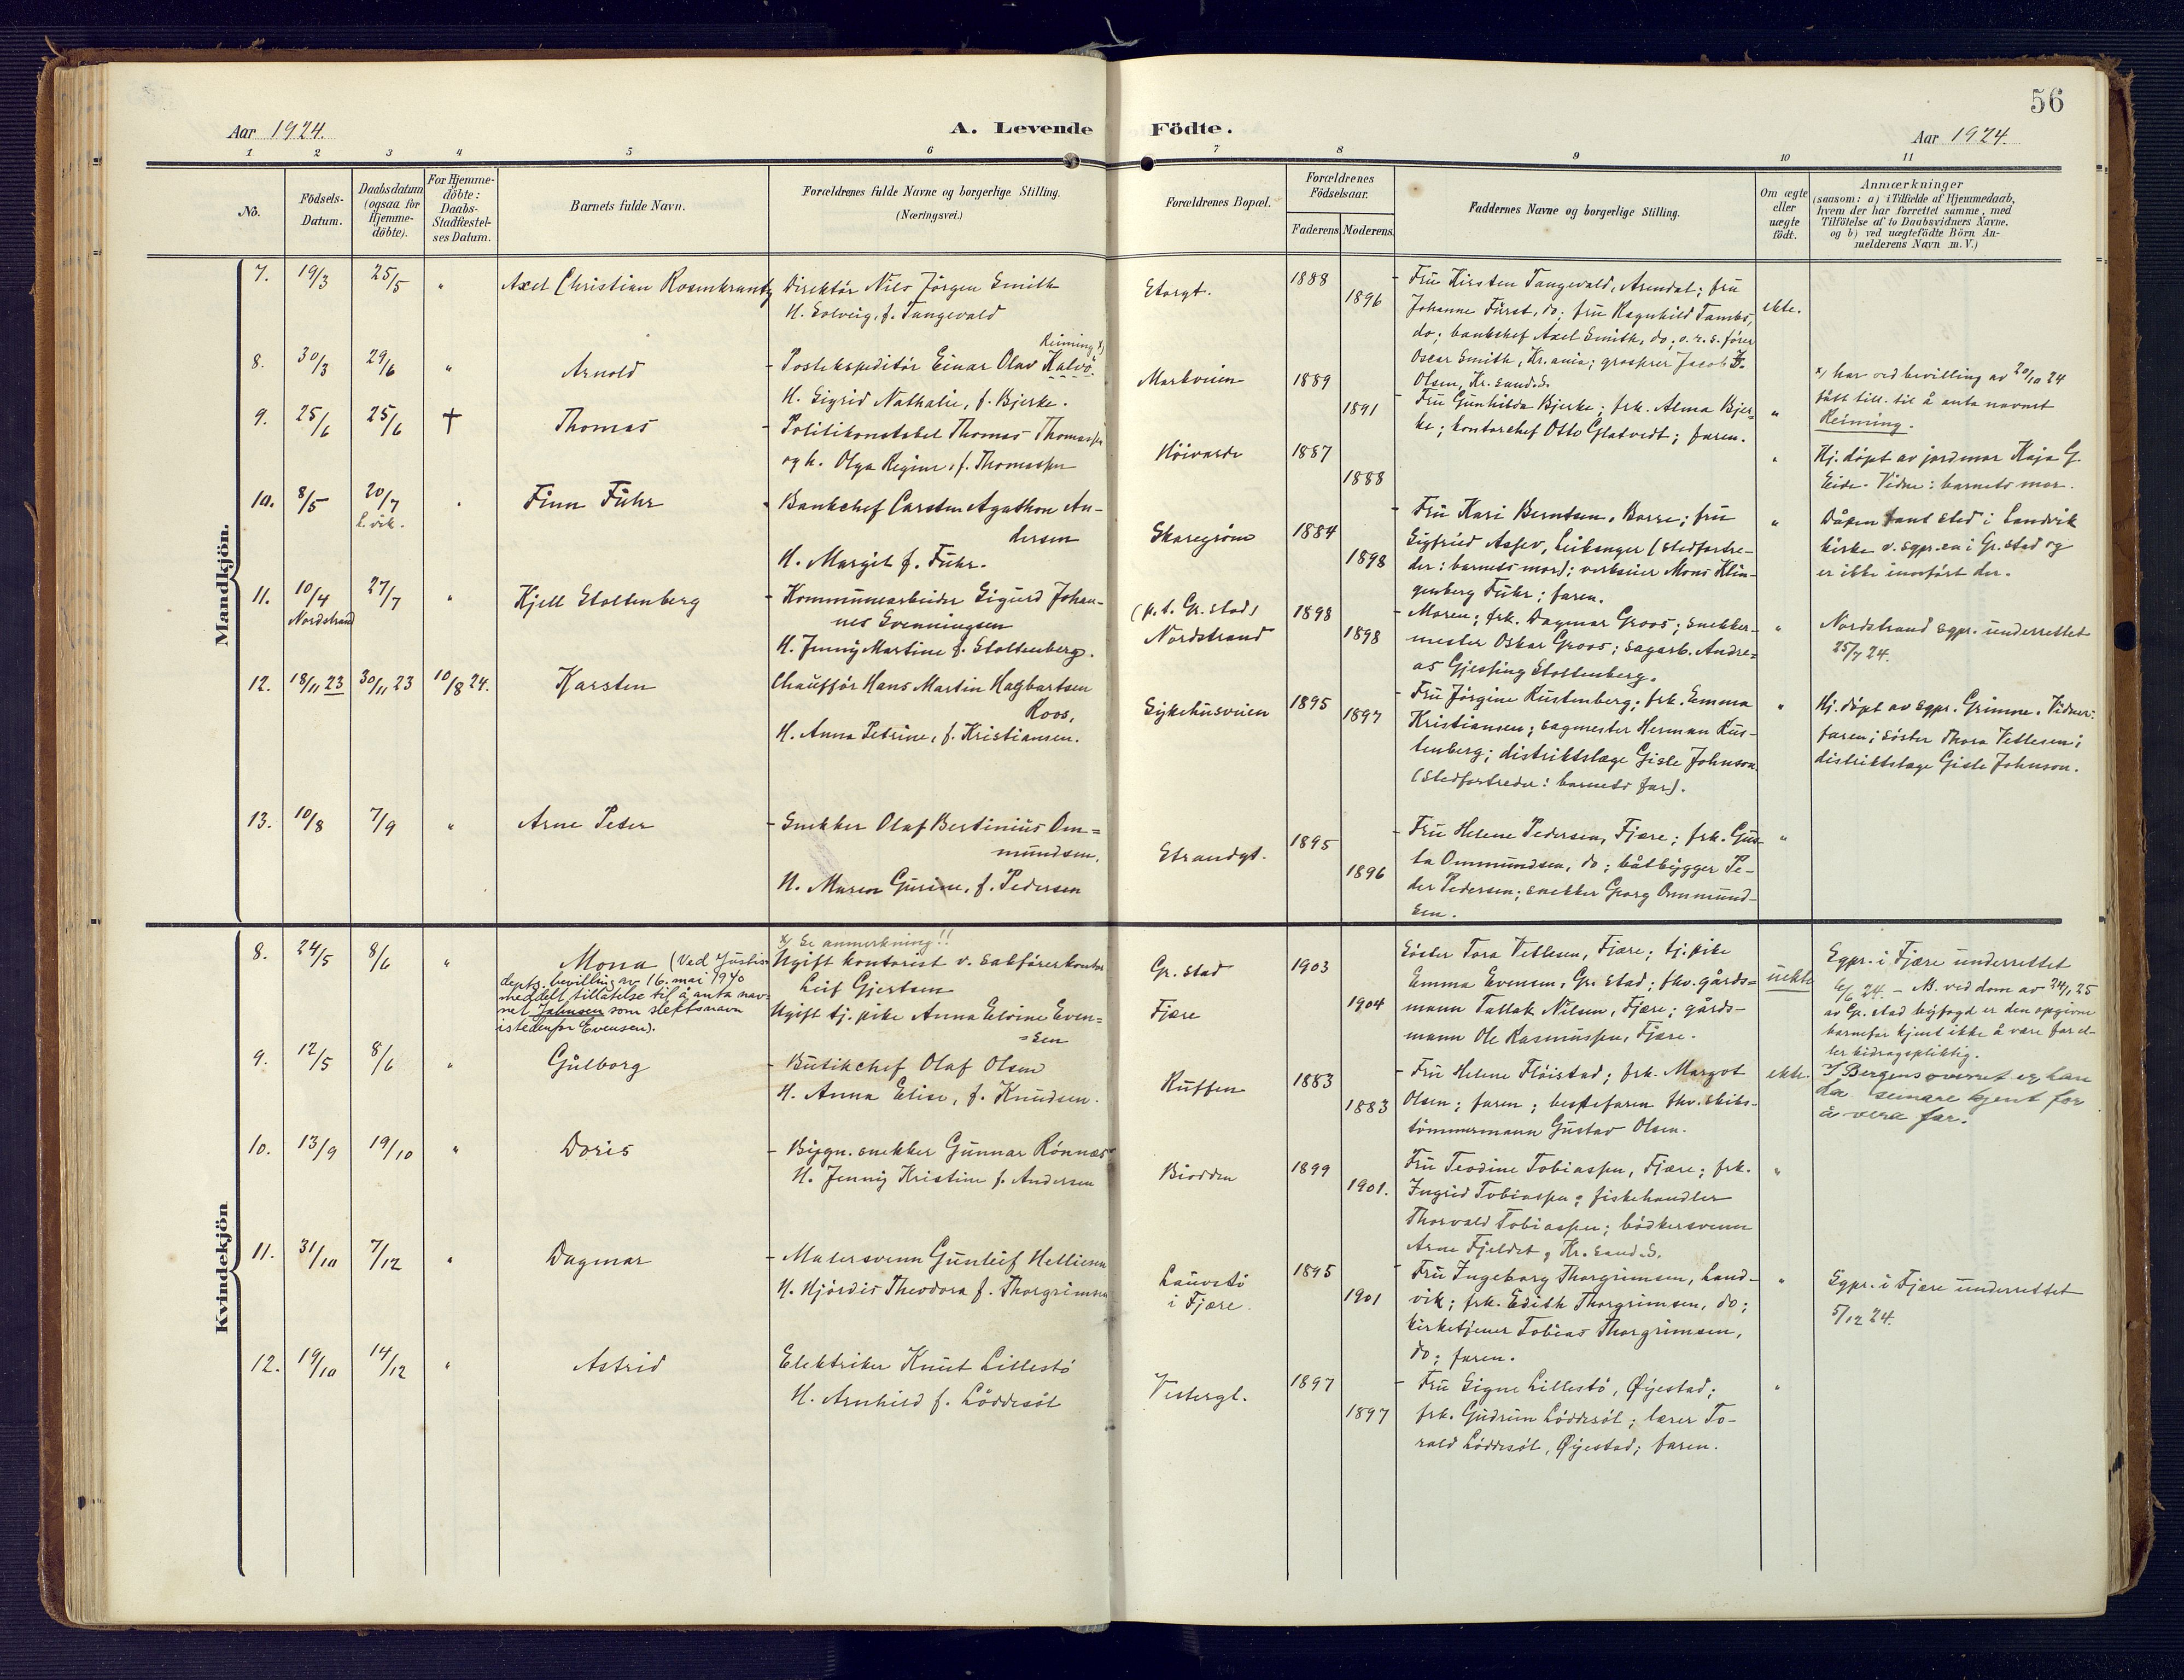 56
Aar 1924.
A. Levende Födte.
Aar 1924.
1 2 3 4 5 6 7 8 9 10 11
No.
Födsels-
Datum.
Daabsdatum
(ogsaa for
Hjemme-
döbte).
For Hjemme-
döbte:
Daabs-
Stadfæstel-
ses Datum.
Barnets fulde Navn.
Forældrenes fulde Navne og borgerlige Stilling.
(Næringsvei.)
Forældrenes Bopæl.
Forældrenes
Födselsaar.
Faderens Moderens.
Faddernes Navne og borgerlige Stilling.
Om ægte
eller
uægte
födt.
Anmærkninger
(saasom: a) i Tilfælde af Hjemmedaab,
hvem der har forrettet samme, med
Tilföielse af to Daabsvidners Navne,
og b) ved uægtefödte Börn An-
melderens Navn m. V.)
Mandkjön.
7. 19/3 25/5 " Axel Christian Rosenkrantz
Direktør Nils Jörgen Smith
H. Solveig, f. Tangevald
Storgt.
1888
1896
- Fru Kirsten Tangevald, Arendal; fru
Johanne Fürst, do; fru Ragnhild Tambs,
do; bankchef Axel Smith, do; o.r.s. fører
Oscar Smith, Kr.ania; grosserer Jacob
Olsen, Kr.sand S.
ekte.
8. 30/3 29/6 " Arnold
Reiming x)
- Postekspeditør Einar Olav Kalvö.
H. Sigrid Nathalie, f. Bjerke.
Markveien
1889
1891
- Fru Gunhilda Bjerke; frk. Alma Bjer-
ke; kontorchef Otto Glatvedt; faren.
"
x) har ved bevilling av 20/10 24
fått till. til å anta navnet
Reiming.
9. 25/6 25/6 † Thomas
- Politikonstabel Thomas Thomassen
og h. Olga Regine, f. Thomassen
Höivarde
1887
1888
"
Hj. døpt av jordmor Kaja G.
Eide. Vidne: barnets mor.
10. 8/5 20/7 " Finn Führ
L.vik.
- Bankchef Carsten Agathon An-
dersen
H. Margit f. Führ.
Skaregrøm
1884
1898
- Fru Kari Berntsen, Borre; fru
Sigfried Asser, Leikanger (stedfortre-
der: barnets mor); verkseier Mons Klin-
genberg Führ; faren.
"
Dåpen fant sted i Landvik
kirke v. sgpr.en i Gr.stad og
er ikke innført der.
11. 10/4 27/7 " Kjell Stoltenberg
Nordstrand
- Kommunearbeider Sigurd Johan-
nes Svenningsen
H. Jenny Martine f. Stoltenberg.
(p.t. Gr.stad)
Nordstrand
1898
1898
- Moren; frk. Dagmar Groos; snekker-
mester Oskar Groos; sagarb. Andre-
as Gjessing Stoltenberg.
"
Nordstrand sgpr. underrettet
25/7 24.
12. 18/11 23 30/11 23 10/8 24. Karsten
Chauffør Hans Martin Hagbartsen
Roos,
H. Anna Petrine, f. Kristiansen.
Sykehusveien
1895
1897
- Fru Jörgine Rustenberg; frk. Emma
Kristiansen; sagmester Herman Rus-
tenberg; distriktslæge Gisle Johnson.
(Stedfortreder: barnets far).
"
Hj. døpt av sgpr. Grimne. Vidner:
faren; söster Thora Vetlesen;
distriktslæge Gisle Johnson.
13. 10/8 7/9 " Arne Peder
- Snekker Olaf Bertinius Om-
mundsen.
H. Maren Gurine, f. Pedersen
Strandgt.
1895
1896
- Fru Helene Pedersen, Fjære; frk. Gus-
ta Ommundsen, do; båtbygger Pe-
der Pedersen; snekker Georg Ommund-
sen.
"
Kvindekjön
8. 24/5 8/6 " Mona (Ved Justis-
depts. bevilling av 16. mai 1940
meddelt tillåtelse til å anta nav-
net Johnsen som slektsnavn
istedenfor Evensen).
x) Se anmerkning!!
Ugift kontorist v. sakførerkontor
Leif Gjertsen
Ugift tj.pike Anna Elvine Even-
sen
Gr.stad
Fjære
1903
1904
Söster Tora Vetlesen, Fjære; tj.pike
Emma Evensen, Gr.stad; fhv. gårds-
mann Tallak Nilsen, Fjære; gårds-
mann Ole Rasmussen, Fjære.
uekte
Sgpr. i Fjære underrettet
6/6 24. - M. ved dom av 24/1 25
av Gr.stad byfogd er den opgivne
barnefar kjent ikke å være far el-
ler bidragspliktig.
I Bergens overret er han
da seinare kjent for
å vera far.
9. 12/5 8/6 " Gulborg
- Butikchef Olaf Olsen
H. Anna Elise, f. Knudsen.
Ruffen
1883
1883
- Fru Helene Flöistad; frk. Margot
Olsen; faren; bestefaren fhv. skibs-
tömmermann Gustav Olsen.
ekte.
10. 13/9 19/10 " Doris
- Bygn.snekker Gunnar Rönnes
H. Jenny Kristine f. Andersen
Biodden
1899
1901.
Fru Teodine Tobiassen, Fjære; frk.
Ingrid Tobiassen; fiskehandler
Thorvald Tobiassen; bödkersvenn
Arne Fjeldet, Kr.sand S.
"
11. 31/10 7/12 " Dagmar
- Malersvenn Gunleif Helliesen
H. Hjördis Theodora f. Thorgrimsen
Lauvstö
i Fjære.
1895
1901
- Fru Ingeborg Thorgrimsen, Land-
vik; frk. Edith Thorgrimsen, do;
kirketjener Tobias Thorgrimsen,
do; faren.
"
Sgpr. i Fjære underrettet
5/12 24.
12. 19/10 14/12 " Astrid
Elektriker Knut Lillestö
H. Arnhild f. Löddesöl
Vestergt.
1897
1897
- Fru Signe Lillestö, Øyestad;
frk. Gudrun Löddesöl; lærer To-
rald Löddesöl, Øyestad; faren.
"